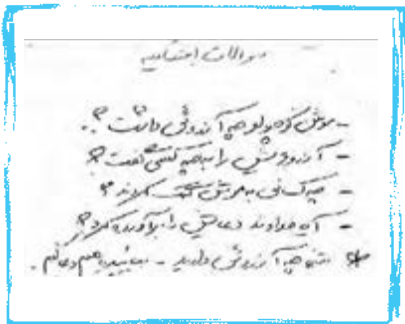 سوالات احتمالیه
- موش کوچولو چه آرزوئی داشت؟
- آرزویش را به چه کسی گفت؟
- چه کسانی به موش کمک کردند؟
- آیا خداوند دعایش را برآورده کرد؟
* شما چه آرزوئی دارید - بیائید باهم دعا کنیم.